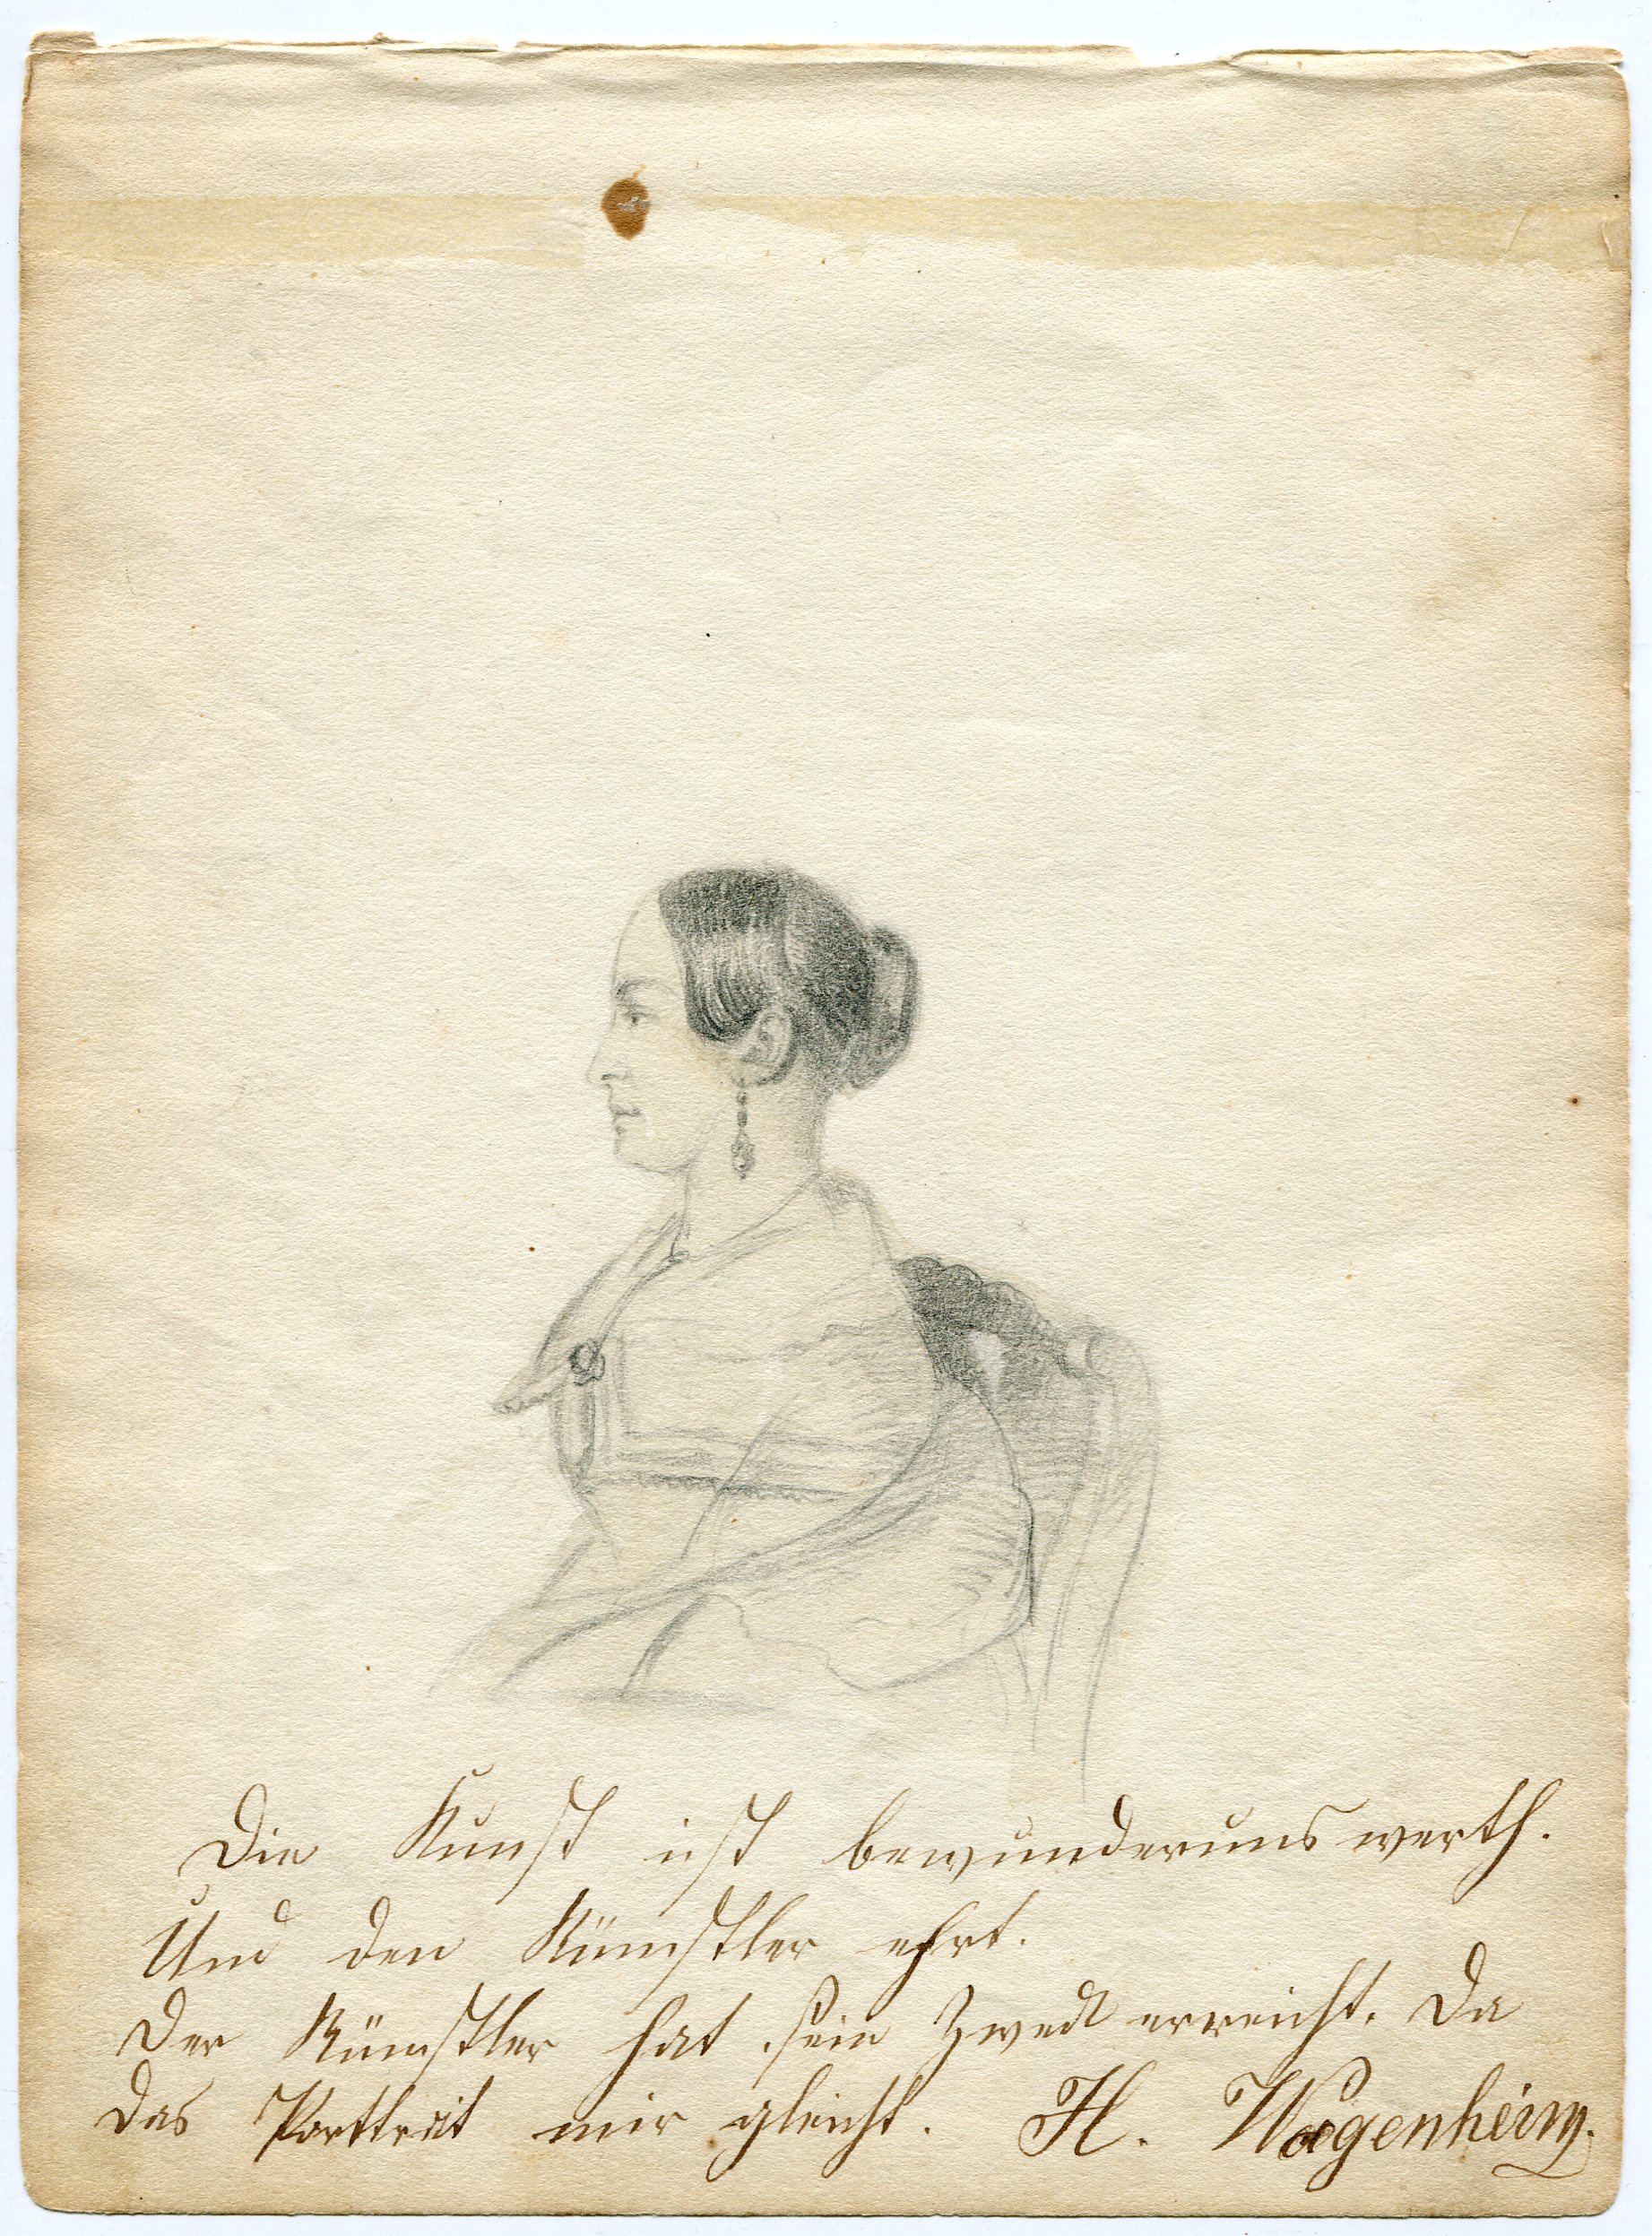 Die Kunst ist bewunderuns werth.
Und den Künstler ehrt.
Der Künstler hat sein Zweck erreicht. Da
das Porttreit mir gleicht. H. Wagenheim.